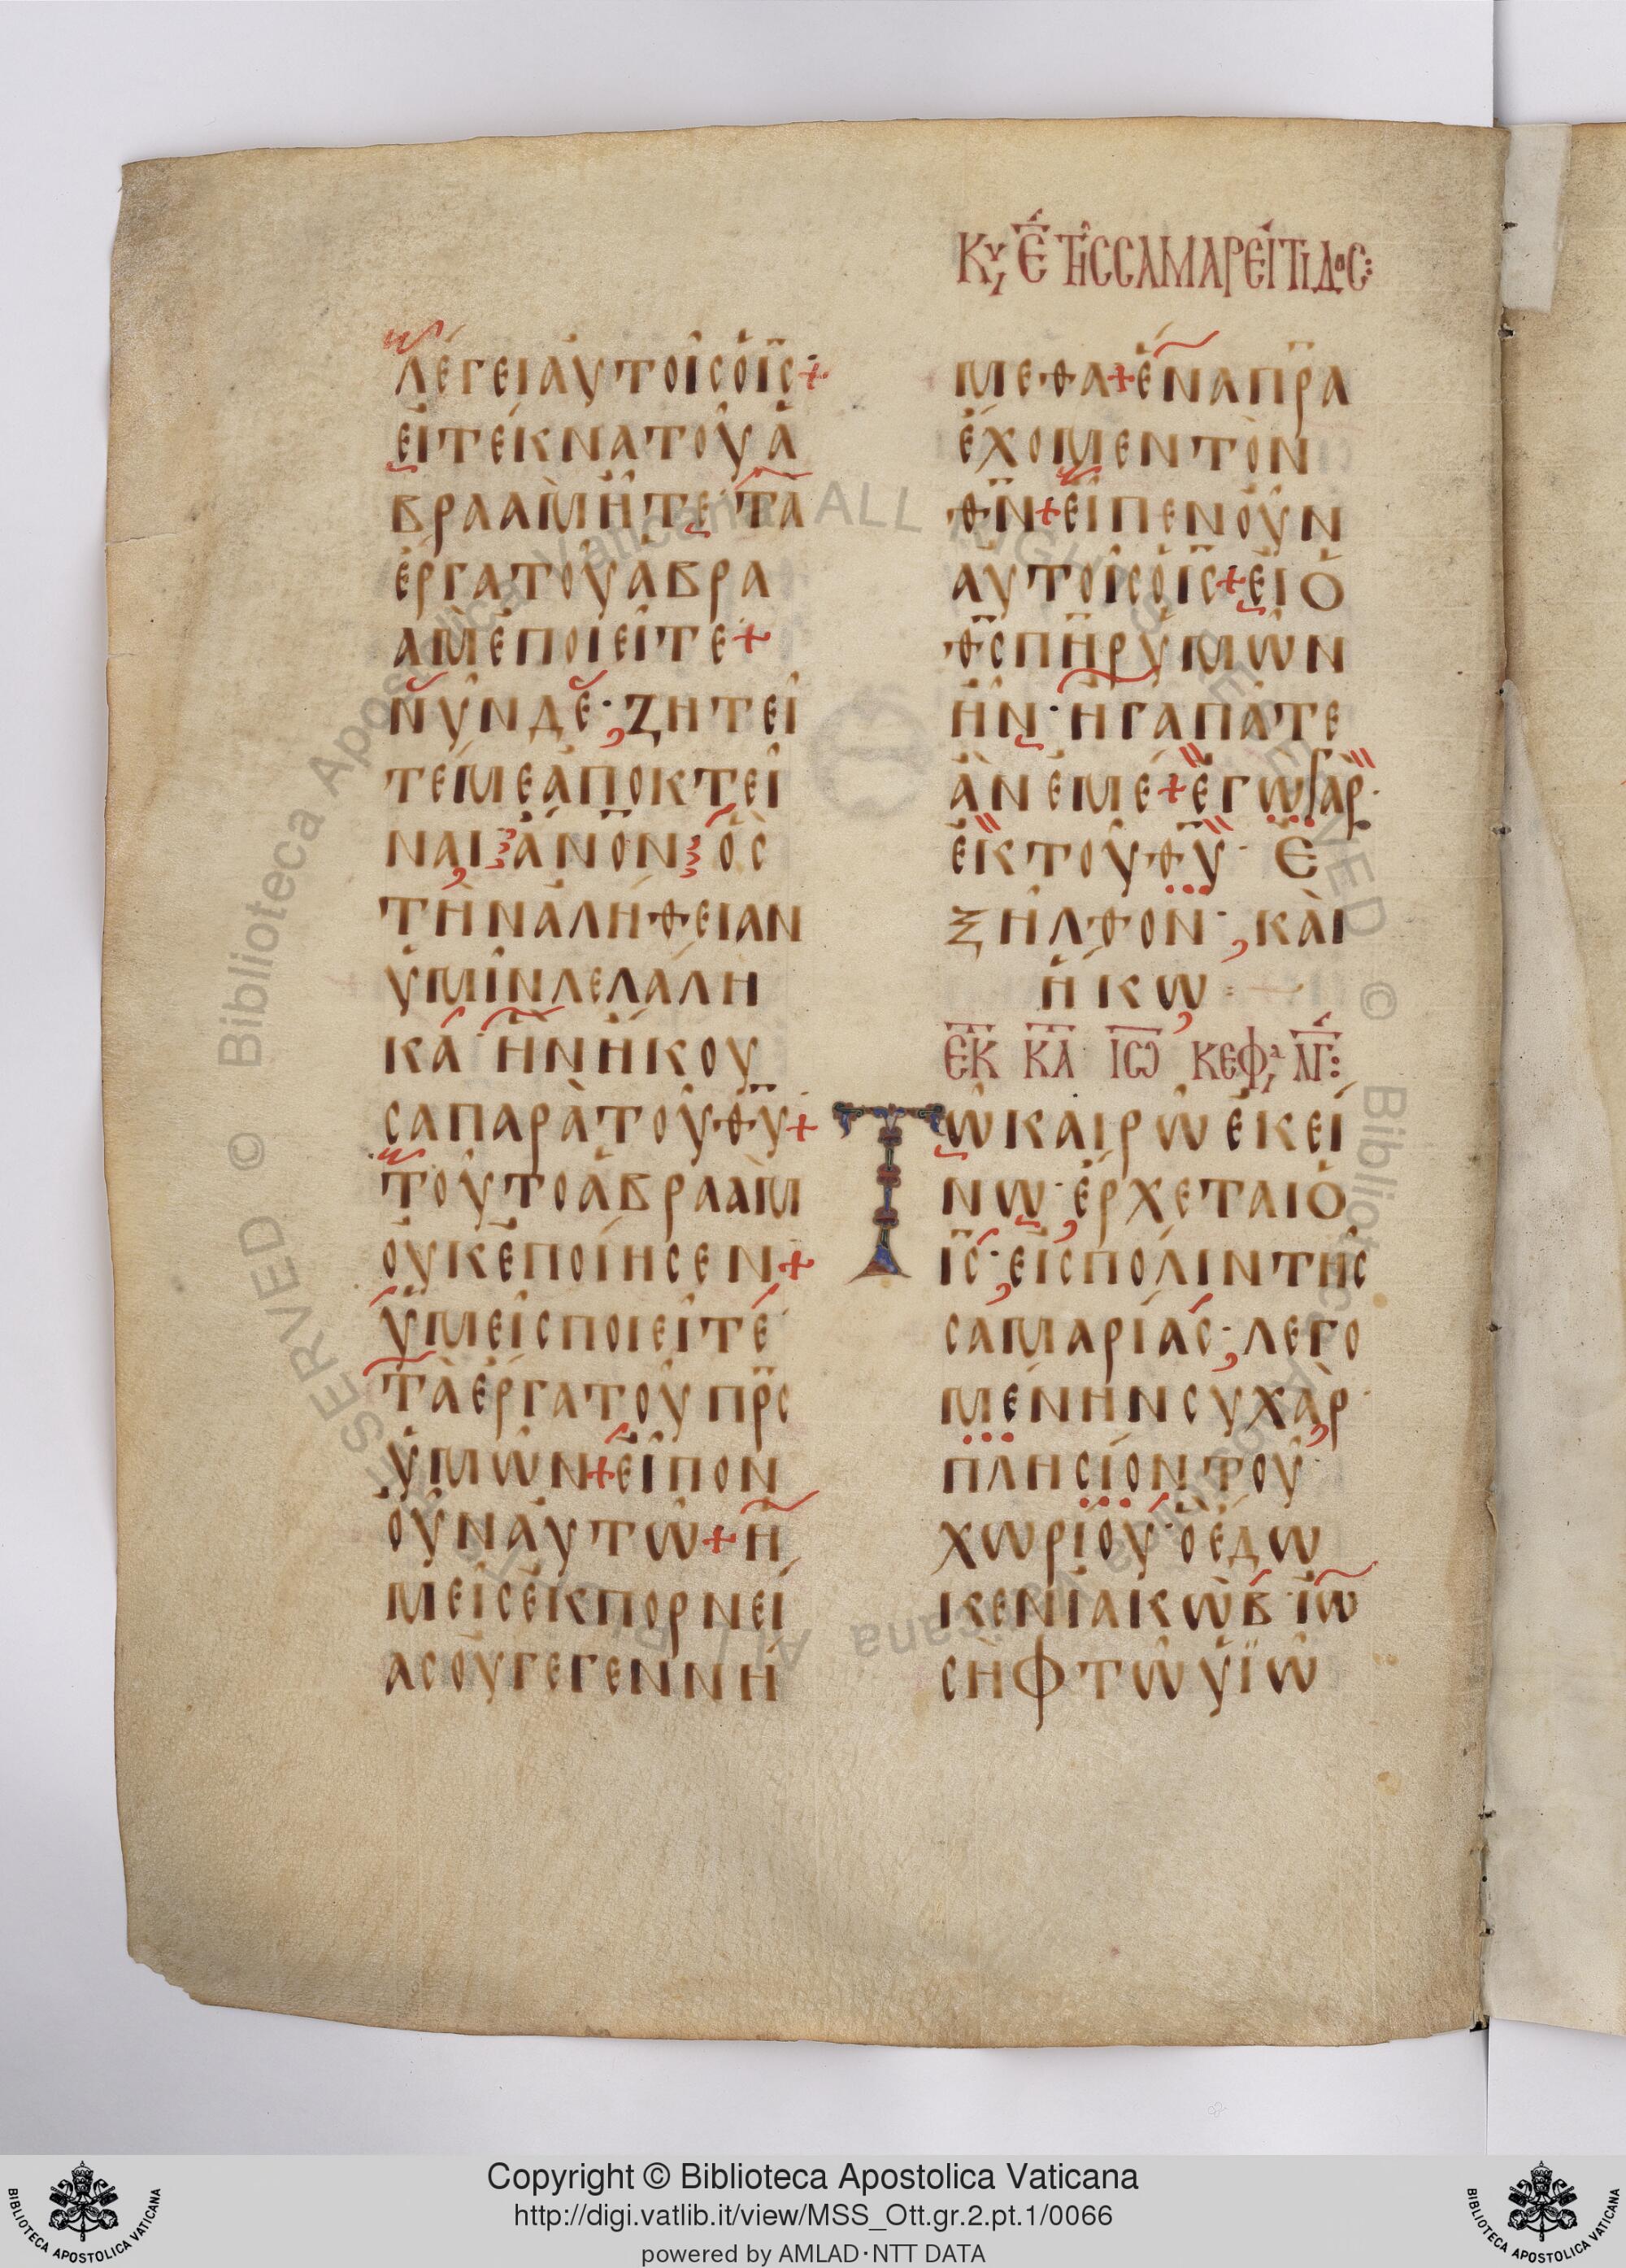 Κυ, Ε̅ τῆς σαμαρείτιδος:
λέγει αὐτοῖς ὁ ι̅ς̅ +
εἰ τέκνα τοῦ ἀ
βραὰμ ἦτε· τὰ
ἔργα τοῦ ἀβρα
ὰμ ἐποιεῖτε +
νῦν δὲ· ζητεῖ
τέ με ἀποκτεῖ
ναι ἀ̅ν̅ο̅ν̅ ὃς
τὴν ἀλήθειαν
ὑμῖν λελάλη
κα· ἣν ἤκου
σα παρὰ τοῦ θ̅υ̅ +
τοῦτο ἀβραὰμ
οὐκ ἐποίησεν +
ὑμεῖς ποιεῖτε
τὰ ἔργα τοῦ π̅ρ̅ς̅
ὑμῶν + εἶπον
οὖν αὐτῶ + ἡ
μεῖς ἐκ πορνεί
ας οὐ γεγεννή
μεθα + ἕνα π̅ρ̅α̅
ἔχομεν τὸν
θ̅ν̅ + εἶπεν οὖν
αὐτοῖς ὁ ι̅ς̅ + εἰ ὁ
θ̅ς̅ πη̅ρ̅ ὑμῶν
ἦν· ἠγαπᾶτε
ἂν ἐμέ + ἐγὼ γὰρ·
ἐκ τοῦ θ̅υ̅· ἐ
ξῆλθον·, καὶ
ἥκω:
ΕΚ ΚΑ ΙΩ ΚΕΦ, ΛΓ:
Τῶ καιρῶ ἐκεί
νω· ἔρχεται ὁ
ι̅ς̅· εἰς πόλιν τῆς
σαμαρίας·, λεγο
μένην συχὰρ·
πλησίον τοῦ
χωρίου· ὃ ἔδω
κεν ἰακὼβ ἰω
σὴφ τῶ υἱῶ
Copyright © Biblioteca Apostolica Vaticana
http://digi.vatlib.it/view/MSS_Ott.gr.2.pt.1/0066
powered by AMLAD·NTT DATA
BIBLIOTECA APOSTOLICA VATICANA
BIBLIOTECA APOSTOLICA VATICANA